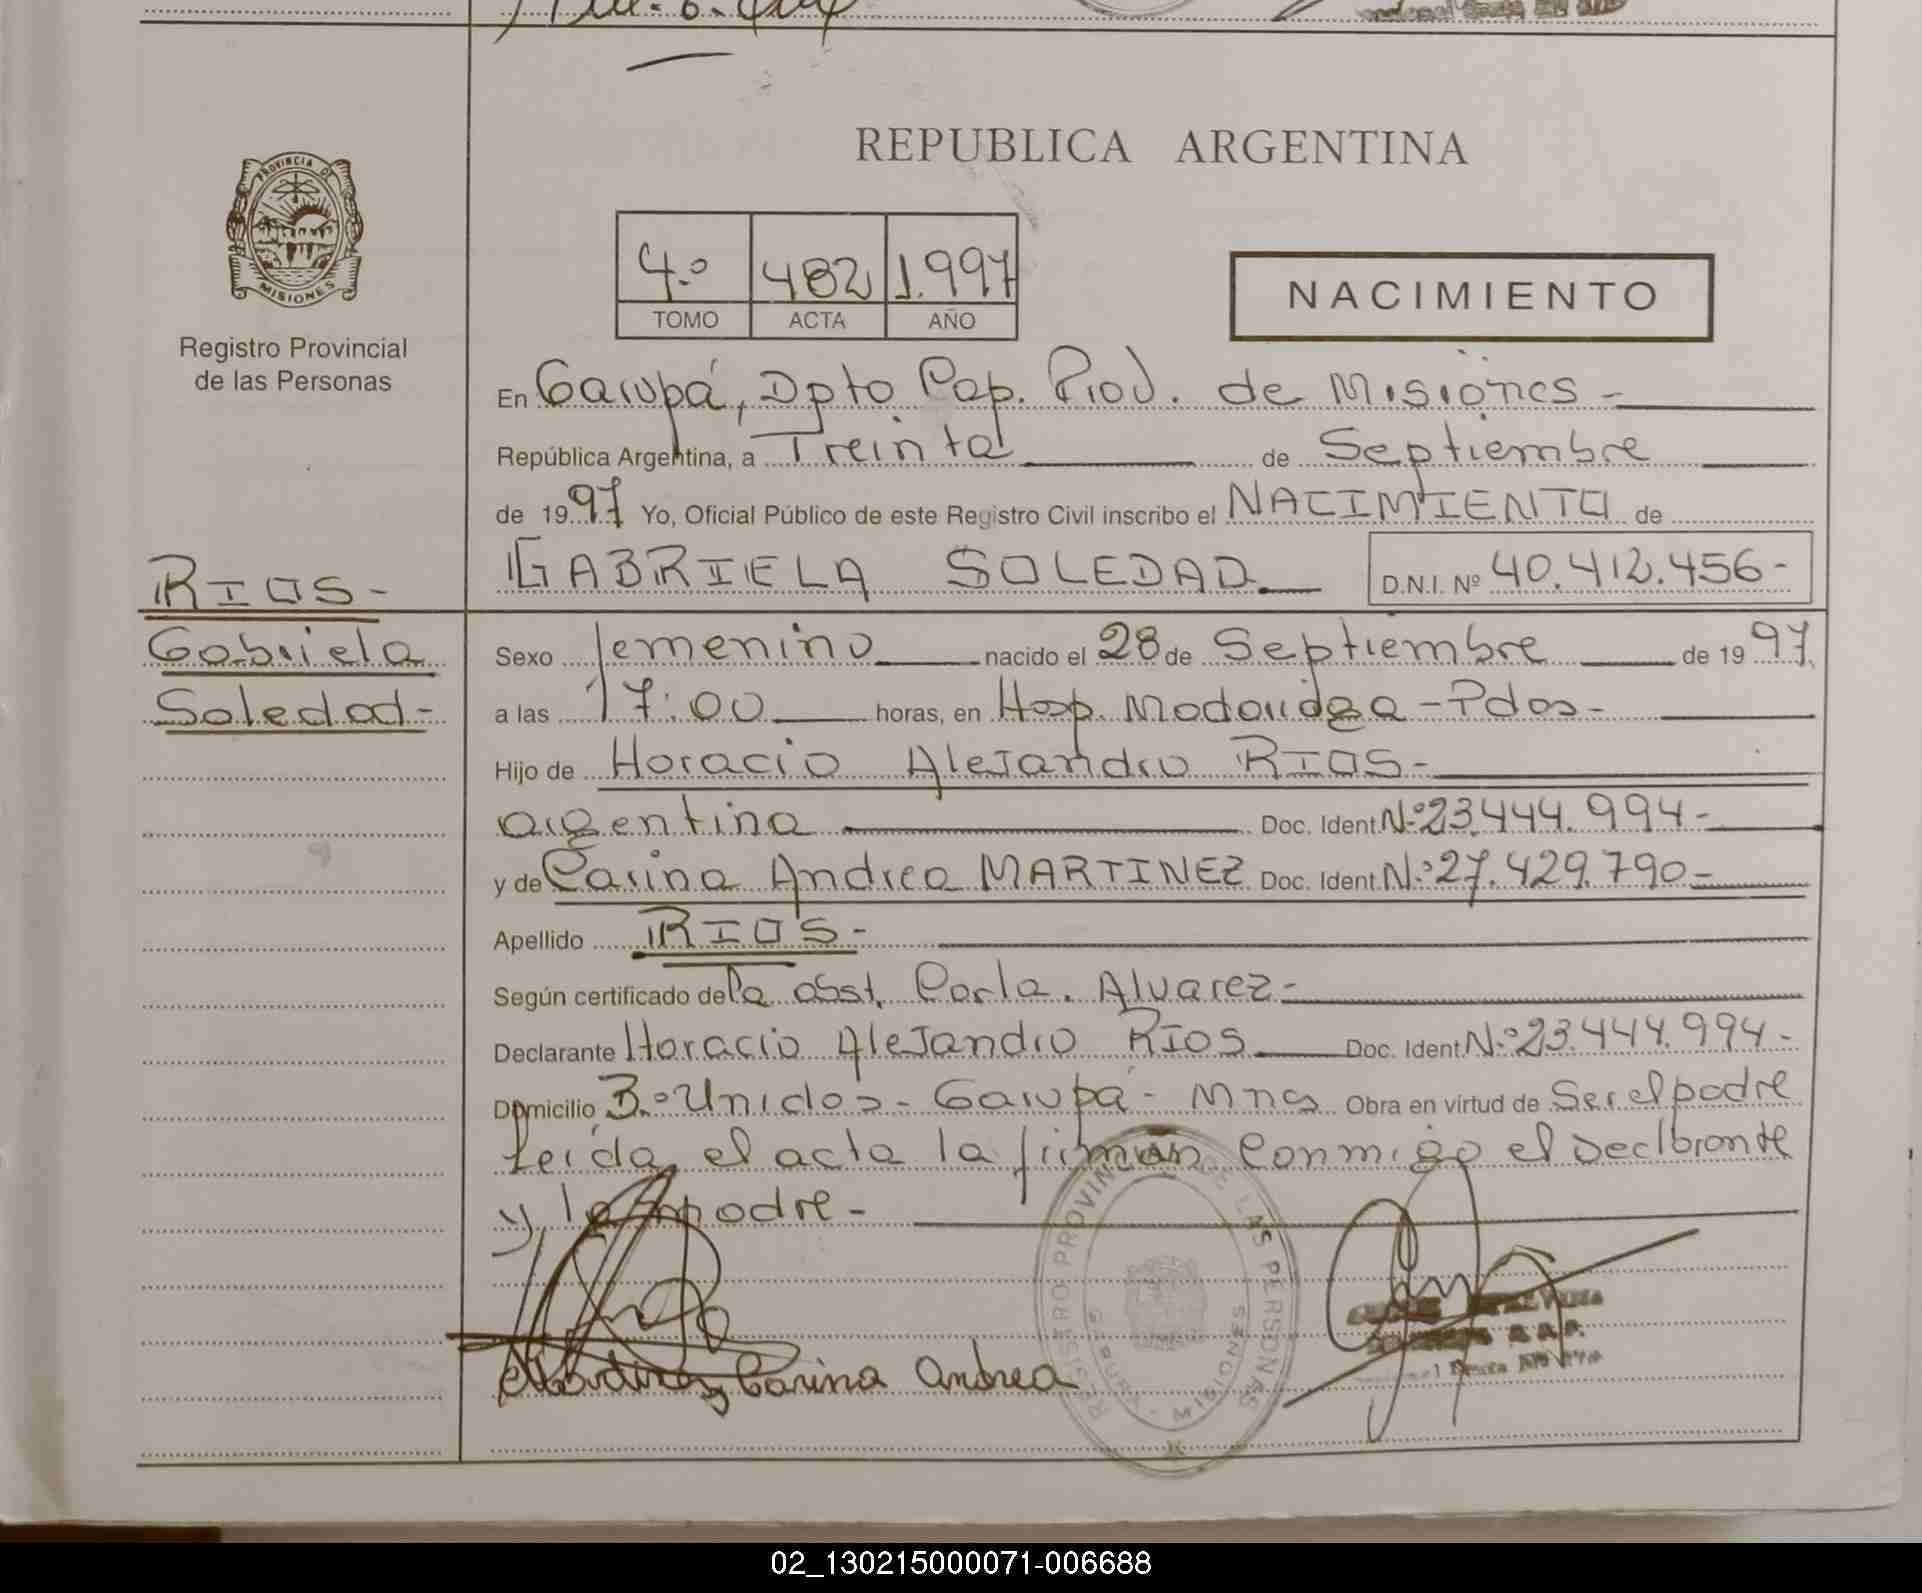 PROVINCIA DE
MISIONES
Registro Provincial
de las Personas
REPUBLICA ARGENTINA
4.º 482 1.997
TOMO ACTA AÑO
NACIMIENTO
En Garupá, Dpto Cap. Prov. de Misiones -
República Argentina, a Treinta de Septiembre
de 1997 Yo, Oficial Público de este Registro Civil inscribo el NACIMIENTO de
RIOS -
GABRIELA SOLEDAD D.N.I. Nº 40.412.456-
Gabriela
Soledad-
Sexo femenino nacido el 28 de Septiembre de 1997
a las 17:00 horas, en Hosp. Madariaga - Pdas-
Hijo de Horacio Alejandro RIOS-
argentina Doc. Ident Nº 23.444.994-
y de Carina Andrea MARTINEZ Doc. Ident Nº 27.429.790-
Apellido RIOS-
Según certificado de la obst. Carla. Alvarez-
Declarante Horacio Alejandro RIOS Doc. Ident Nº 23.444.994-
Domicilio Bº Unidos - Garupá - Mnes Obra en virtud de Ser el padre
leída el acta la firman conmigo el declarante
y la madre-
REGISTRO PROVINCIAL DE LAS PERSONAS
GARUPA - MISIONES
Martinez Carina Andrea
02_130215000071-006688